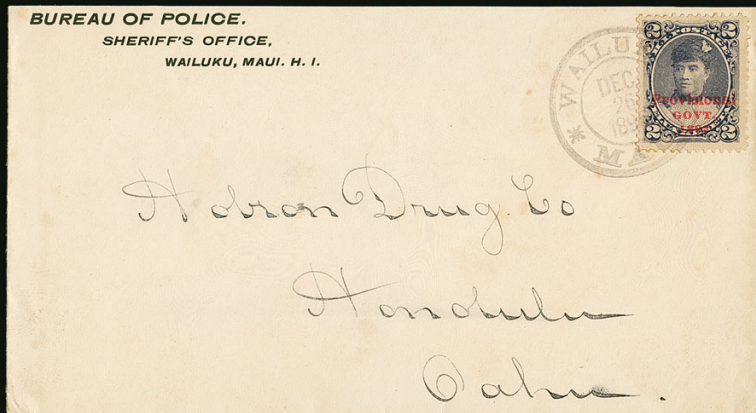 BUREAU OF POLICE.
SHERIFF'S OFFICE,
WAILUKU, MAUI. H. I.
2 2
Provisional
GOVT.
2 2
DEC
Hobron Drug. Co
Honolulu
Oahu.